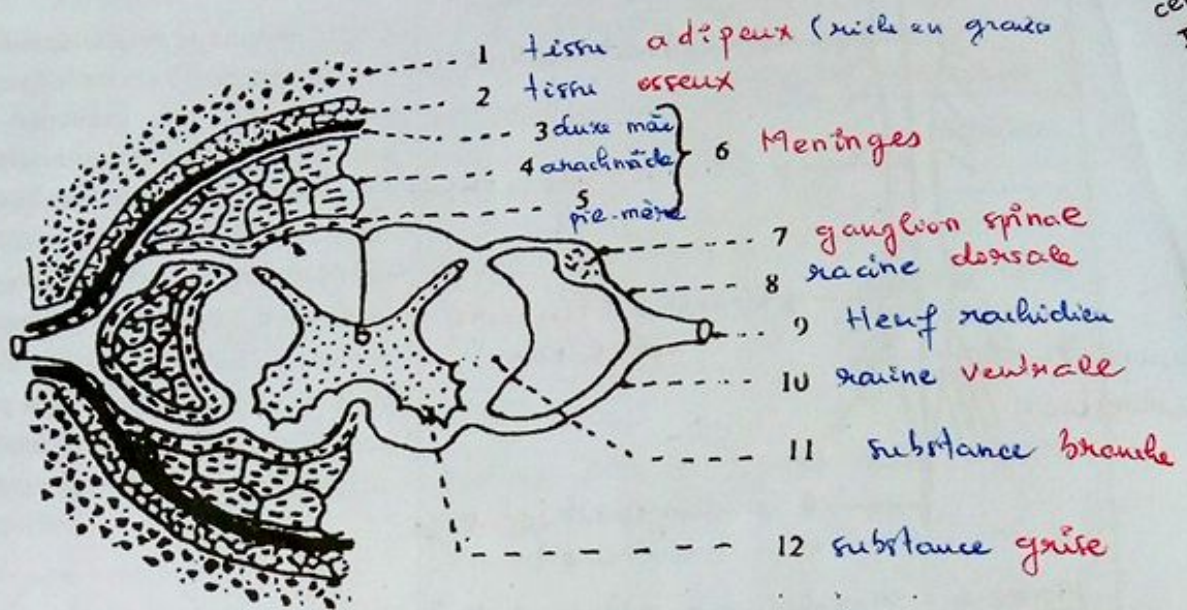 1 tissu adipeux (riche en graisse
2 tissu osseux
3 dure mère
4 arachnoïde
5 pie-mère
6 Meninges
7 ganglion spinal
8 racine dorsale
9 Nerf rachidien
10 racine ventrale
11 substance branche
12 substance grise